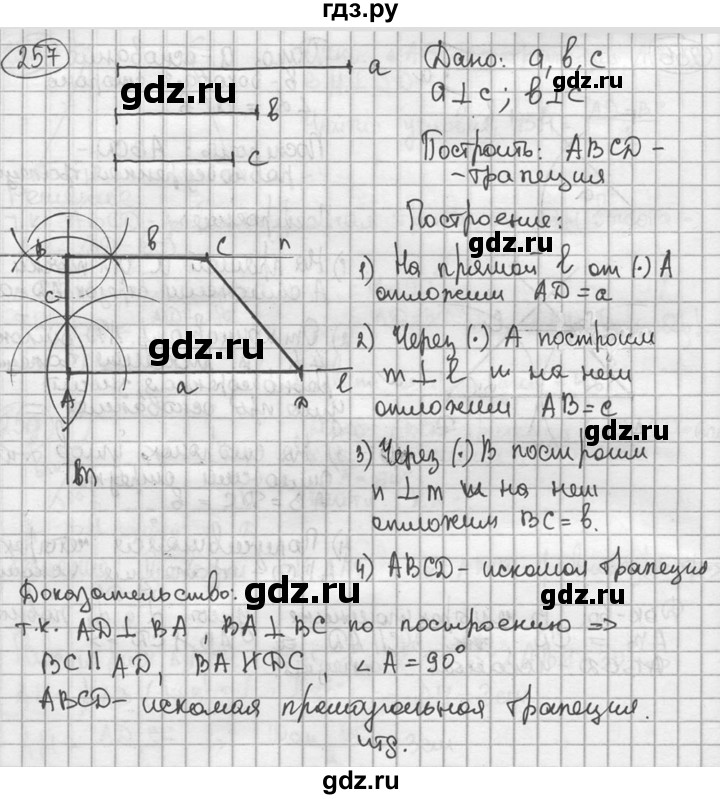 гдз.ру
257
a
b
c
gdz.ru
Дано: a, b, c
a⊥c; b⊥c
gdz.ru
Построить: ABCD -
-трапеция
Построение:
B b C n
c
gdz.ru
a
A D l
m
1) На прямой l от (·) A
отложим AD = a
2) Через (·) A построим
m ⊥ l и на нём
отложим AB = c
gdz.ru
3) Через (·) B построим
n ⊥ m и на нем
отложим BC = b.
4) ABCD - искомая трапеция
Доказательство:
т.к. AD ⊥ BA, BA ⊥ BC по построению =>
BC ∥ AD, BA ∦ DC, ∠A = 90°
ABCD - искомая прямоугольная трапеция.
чтд.
gdz.ru